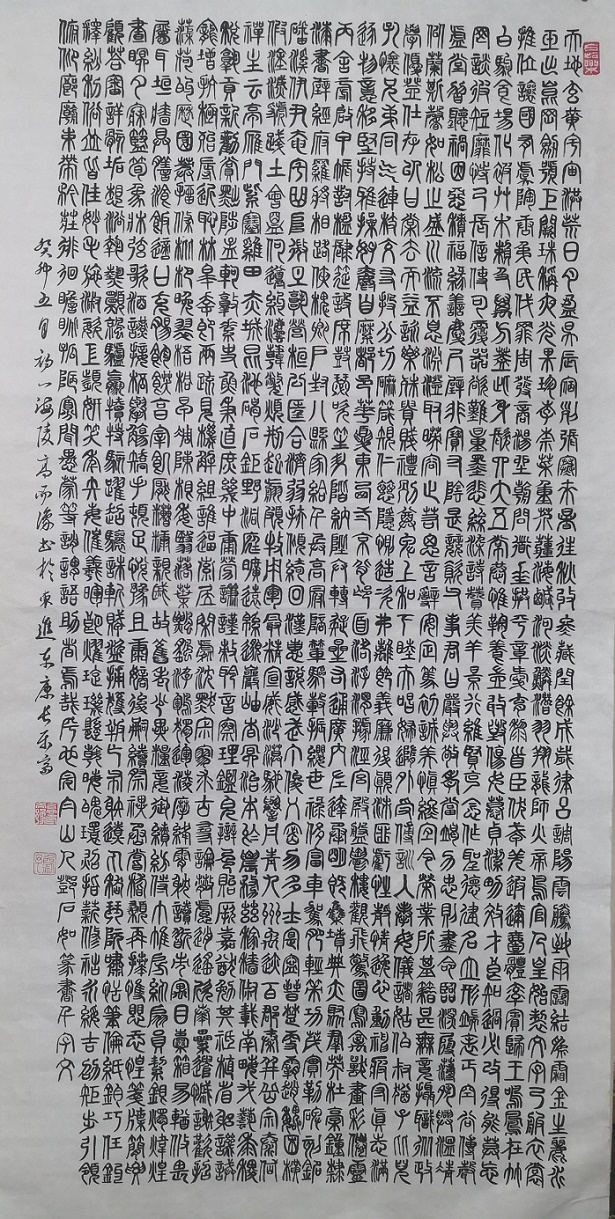 天地玄黃宇宙洪荒日月盈昃辰宿列張寒來暑往秋收冬藏閏餘成歲律呂調陽雲騰致雨露結為霜金生麗水
玉出崑岡劍號巨闕珠稱夜光果珍李柰菜重芥薑海鹹河淡鱗潛羽翔龍師火帝鳥官人皇始制文字乃服衣裳
推位讓國有虞陶唐弔民伐罪周發商湯坐朝問道垂拱平章愛育黎首臣伏戎羌遐邇壹體率賓歸王鳴鳳在竹
白駒食場化被草木賴及萬方蓋此身髮四大五常恭惟鞠養豈敢毀傷女慕貞潔男效才良知過必改得能莫忘
罔談彼短靡恃己長信使可覆器欲難量墨悲絲染詩讚羔羊景行維賢克念作聖德建名立形端表正空谷傳聲
虛堂習聽禍因惡積福緣善慶尺璧非寶寸陰是競資父事君曰嚴與敬孝當竭力忠則盡命臨深履薄夙興溫凊
似蘭斯馨如松之盛川流不息淵澄取映容止若思言辭安定篤初誠美慎終宜令榮業所基籍甚無竟攝職從政
學優登仕存以甘棠去而益詠樂殊貴賤禮別尊卑上和下睦夫唱婦隨外受傅訓入奉母儀諸姑伯叔猶子比兒
孔懷兄弟同氣連枝交友投分切磨箴規仁慈隱惻造次弗離節義廉退顛沛匪虧性靜情逸心動神疲守真志滿
逐物意移堅持雅操好爵自縻都邑華夏東西二京背邙面洛浮渭據涇宮殿盤鬱樓觀飛驚圖寫禽獸畫彩仙靈
丙舍傍啟甲帳對楹肆筵設席鼓瑟吹笙升階納陛弁轉疑星右通廣內左達承明既集墳典亦聚群英杜稾鍾隸
漆書壁經府羅將相路俠槐卿戶封八縣家給千兵高冠陪輦驅轂振纓世祿侈富車駕肥輕策功茂實勒碑刻銘
磻溪伊尹奄宅曲阜微旦孰營桓公匡合濟弱扶傾綺回漢惠說感武丁俊乂密勿多士寔寧晉楚更霸趙魏困橫
假途滅虢踐土會盟何遵約法韓弊煩刑起翦頗牧用軍最精宣威沙漠馳譽丹青九州禹跡百郡秦并嶽宗泰岱
禪主云亭雁門紫塞雞田赤城昆池碣石鉅野洞庭曠遠綿邈巖岫杳冥治本於農務茲稼穡俶載南畝我藝黍稷
稅熟貢新勸賞黜陟孟軻敦素史魚秉直庶幾中庸勞謙謹敕聆音察理鑑貌辨色貽厥嘉猷勉其祗植省躬譏誡
寵增抗極殆辱近恥林皋幸即兩疏見機解組誰逼索居閒處沉默寂寥求古尋論散慮逍遙欣奏累遣慼謝歡招
渠荷的歷園莽抽條枇杷晚翠梧桐早凋陳根委翳落葉飄颻游鵾獨運凌摩絳霄耽讀翫市寓目囊箱易輶攸畏
屬耳垣牆具膳餐飯適口充腸飽飫烹宰飢厭糟糠親戚故舊老少異糧妾御績紡侍巾帷房紈扇圓潔銀燭煒煌
晝眠夕寐籃筍象床弦歌酒讌接杯舉觴矯手頓足悅豫且康嫡後嗣續祭祀烝嘗稽顙再拜悚懼恐惶牋牒簡要
顧答審詳骸垢想浴執熱願涼驢騾犢特駭躍超驤誅斬賊盜捕獲叛亡布射遼丸嵇琴阮嘯恬筆倫紙鈞巧任釣
釋紛利俗並皆佳妙毛施淑姿工顰妍笑年矢每催曦暉朗耀璇璣懸斡晦魄環照指薪修祜永綏吉劭矩步引領
俯仰廊廟束帶矜莊徘徊瞻眺孤陋寡聞愚蒙等誚謂語助者焉哉乎也完白山人鄧石如篆書千字文
癸卯五月初一海陵高而濤书於東進東康長乐齋